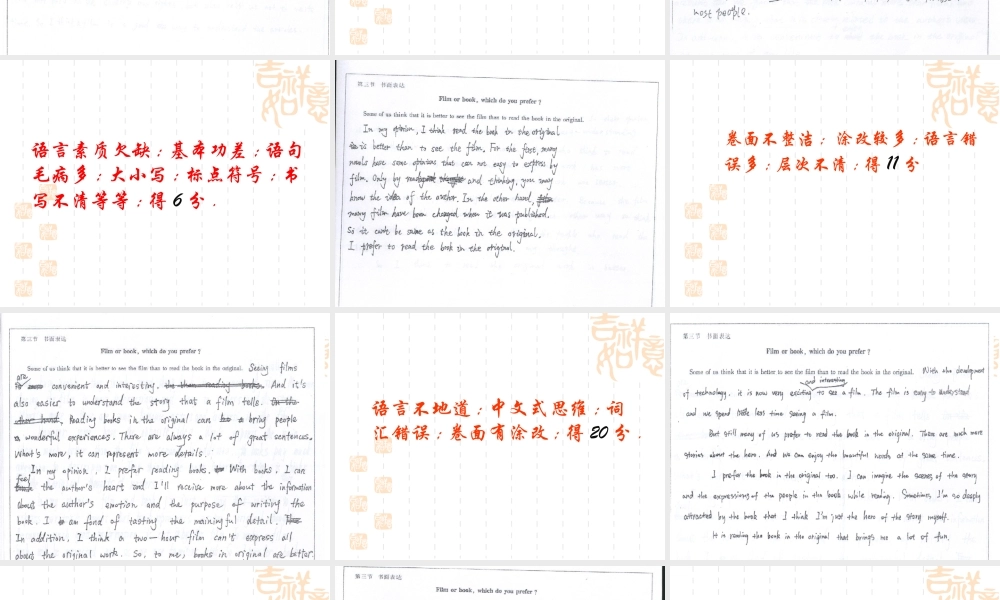 most people.
吉祥如意
语言素质欠缺；基本功差；语句
毛病多；大小写；标点符号；书
写不清等等；得 6 分．
第三节 书面表达
Film or book, which do you prefer ?
Some of us think that it is better to see the film than to read the book in the original.
In my opinion, I think read the book in the original
is better than to see the film. For the first, many
novels have some opinions that can not easy to express by
film. Only by and thinking, you may
know the idea of the author. In the other hand,
many film have been changed when it was published.
So it can't be same as the book in the original.
I prefer to read the book in the original.
吉祥如意
卷面不整洁；涂改较多；语言错
误多；层次不清；得 11 分
第三节 书面表达
Film or book, which do you prefer ?
Some of us think that it is better to see the film than to read the book in the original. Seeing films
are convenient and interesting. And it's
also easier to understand the story that a film tells.
Reading books in the original can bring people
a wonderful experiences. There are always a lot of great sentences.
What's more, it can represent more details.
In my opinion, I prefer reading books. With books, I can
feel the author's heart and I'll receive more about the information
about the author's emotion and the purpose of writing the
book. I am fond of tasting the maningful detail.
In addition, I think a two-hour film can't express all
about the original work. So, to me, books in original are better.
吉祥如意
语言不地道；中文式思维；词
汇错误；卷面有涂改；得 20 分．
第三节 书面表达
Film or book, which do you prefer ?
Some of us think that it is better to see the film than to read the book in the original. With the development
of technology, it is now very exciting and interesting to see a film. The film is easy to understand
and we spend little less time seeing a film.
But still many of us prefer to read the book in the original. There are much more
stories about the hero. And we can enjoy the beautiful words at the same time.
I prefer the book in the original too. I can imagine the scenes of the story
and the expressions of the people in the book while reading. Sometimes, I'm so deeply
attracted by the book that I think I'm just the hero of the story myself.
It is reading the book in the original that brings me a lot of fun.
第三节 书面表达
Film or book, which do you prefer ?